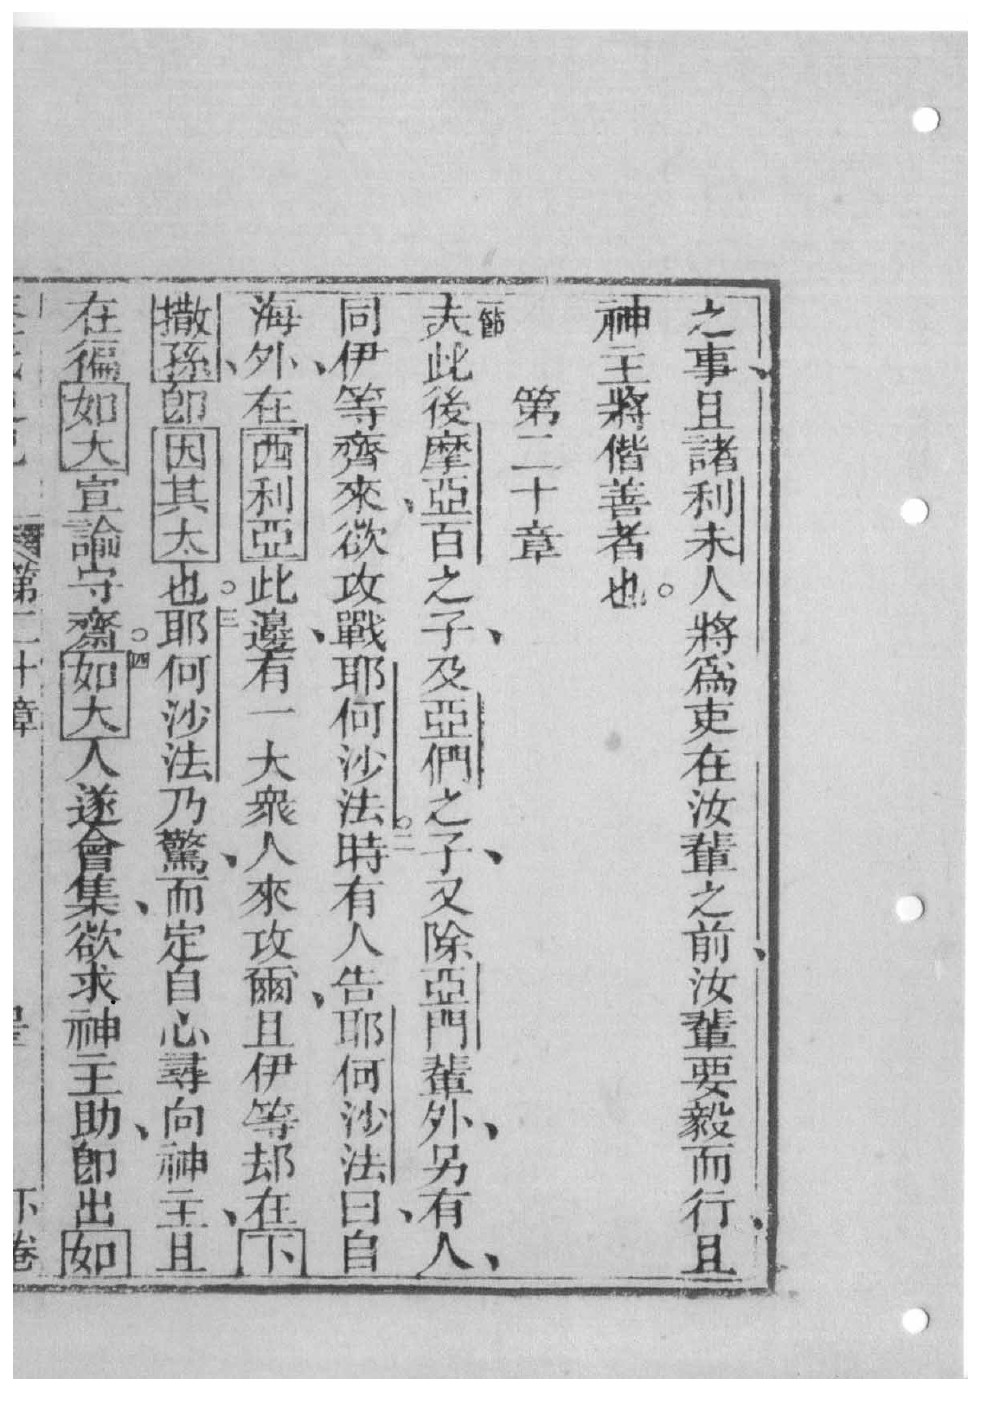 之事、且諸利未人將爲吏在汝輩之前、汝輩要毅而行、且
神主將偕善者也。
第二十章
一節夫此後摩亞百之子、及亞們之子、又除亞門輩外、另有人、
同伊等齊來、欲攻戰耶何沙法。二時有人告耶何沙法曰、自
海外、在西利亞此邊、有一大衆人來攻爾、且伊等却在下
撒孫、卽因其太也。三耶何沙法乃驚、而定自心尋向神主、且
在徧如大宣諭守齋。四如大人遂會集、欲求神主助、卽出如
第二十章 下卷